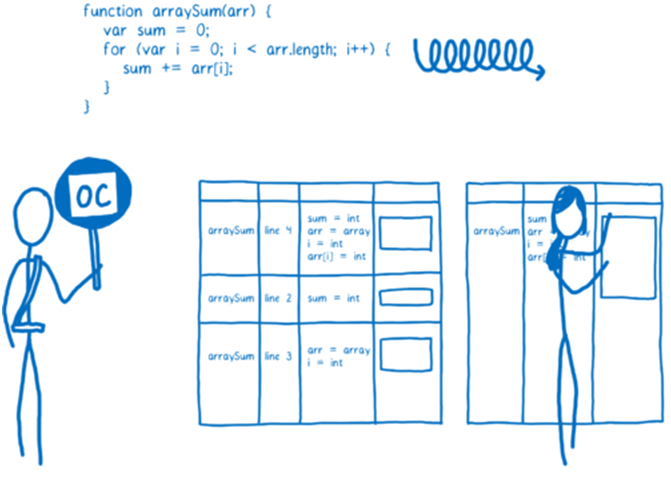 function arraySum(arr) {
var sum = 0;
for (var i = 0; i < arr.length; i++) {
sum += arr[i];
}
}
OC
arraySum line 4 sum = int
arr = array
i = int
arr[i] = int
arraySum line 2 sum = int
arraySum line 3 arr = array
i = int
arraySum sum
arr
i =
int